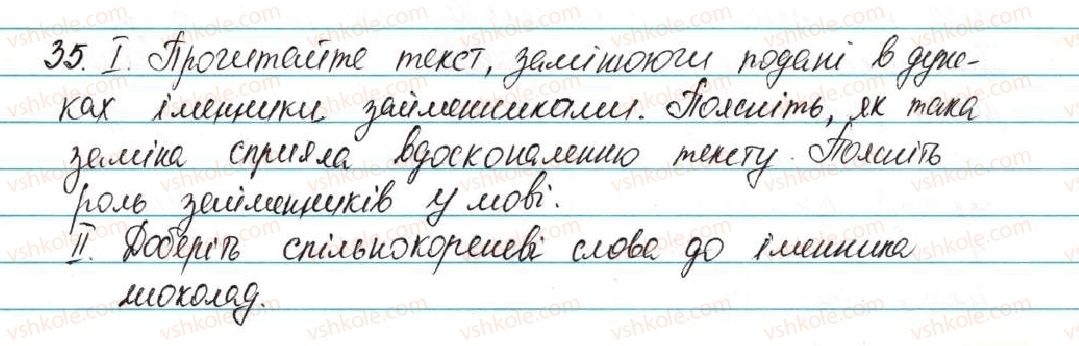 35. I. Прочитайте текст, замінюючи подані в дуж-
ках іменники займенниками. Поясніть, як така
заміна сприяла вдосконаленню тексту. Поясніть
роль займенників у мові.
II. Доберіть спільнокореневі слова до іменника
шоколад.